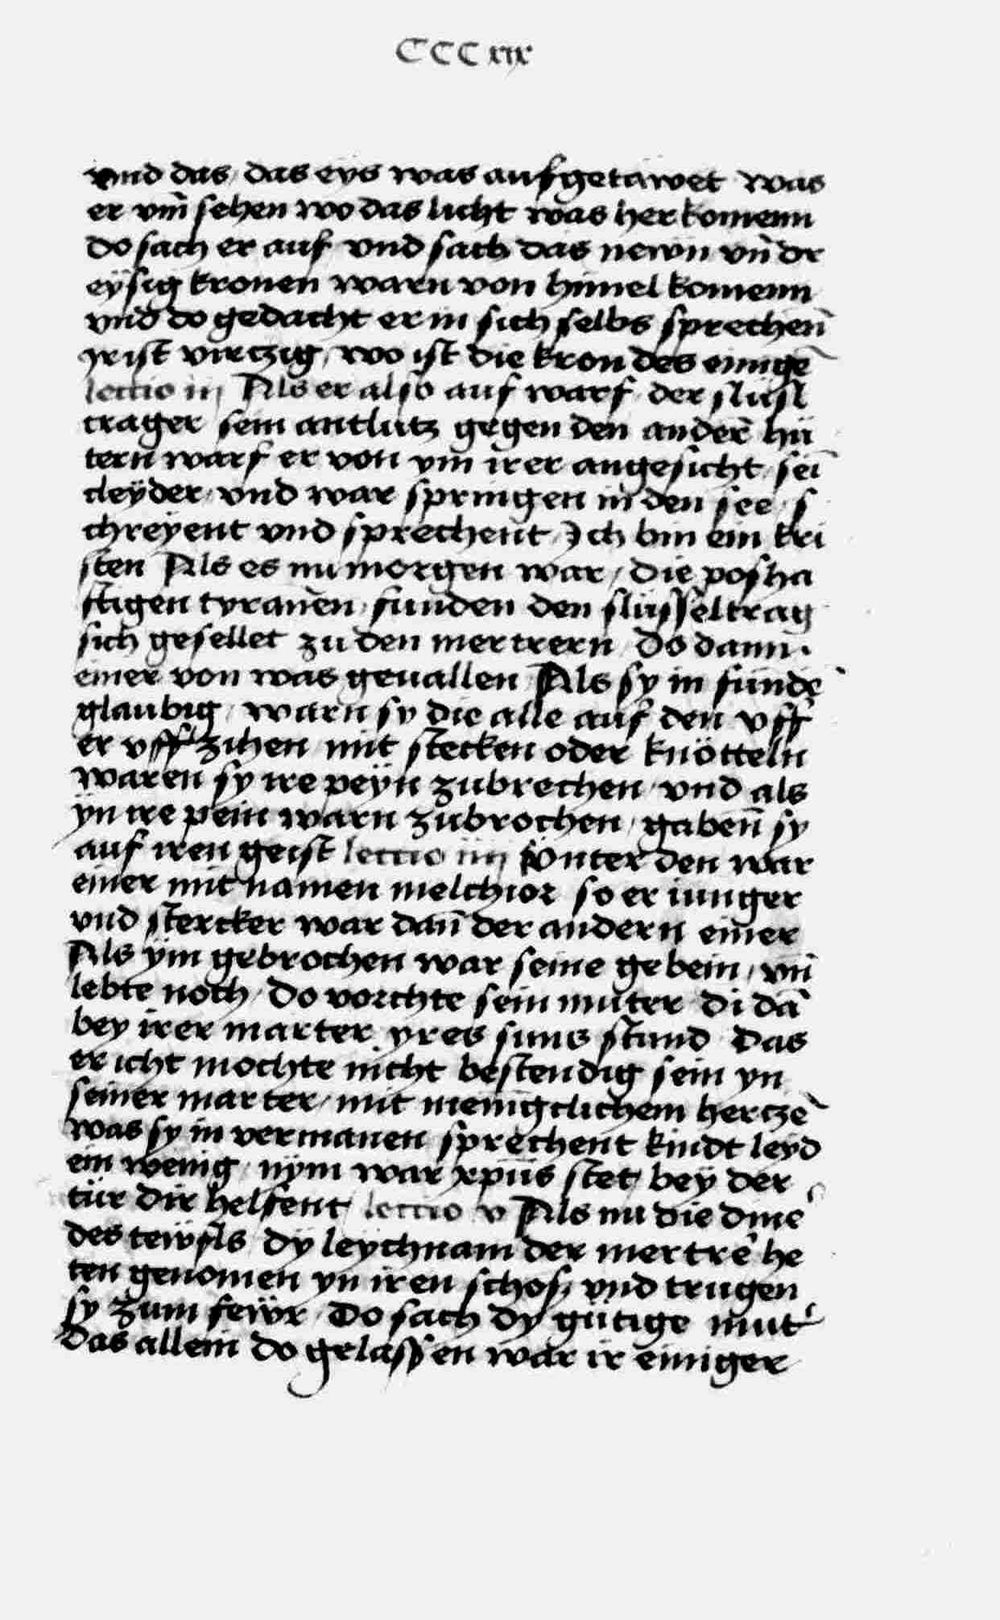 CCCxix
vnd das das eys was aufgetawet was
er vm̄ sehen wo das licht was her komenn
do sach er auf vnd sach das newn vn̄ dr
eysig kronen warn von himel komenn
vnd do gedacht er in sich selbs sprechen̄
yr ist virczig wo ist die kron des einigē
lectio iij Als er also auf warf der slüsl
trager sein antlutz gegen den ander̄ hü
tern warf er von ym irer angesicht sei̅
cleyder vnd war springen in den see s
chreyent vnd sprechent Ich bin ein kri
sten Als es nu morgen war die posha
ftigen tyranen funden den slüsseltrag
sich gesellet zu den mertrern Do dann
einer von was geuallen Als sy in fundē
glaubig warn sy die alle auf den vff
er vff zihen mit stecken oder knötteln
waren sy ire peyn zubrechen vnd als
yn ire pein warn zubrochen gaben̄ sy
auf iren geist lectio iiij Vnter den war
einer mit namen melchior so er iunger
vnd stercker war dan̄ der andern einer
Als ym gebrochen war seine gebein vn̄
lebte noch do vorchte sein muter di dā
bey irer marter yres suns stund Das
er icht mochte nicht bestendig sein yn
seiner marter mit menigclichem herczē
was sy in vermanen sprechent kindt leyd
ein wenig nym war xpūs stet bey der
tür dir helfent lectio v Als nu die dinē
des tewfls dy leychnam der mertrē he
ten genomen yn iren schos vnd trugen
sy zum fewr Do sach dy gütige mut̓
das allein do gelassen war ir einiger